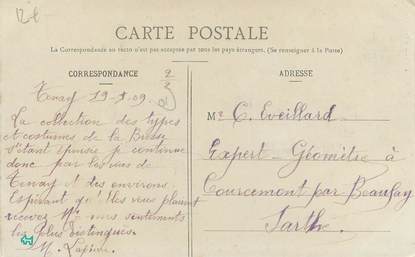 CARTE POSTALE
La Correspondance au recto n'est pas acceptée par tous les pays étrangers. (Se renseigner à la Poste)
CORRESPONDANCE
Tenay 19-1-09
La collection des types
et costumes de la Bresse
s'étant épuisée je continue
donc par les vues de
Tenay et des environs.
Espérant que les vues plairont
recevez Mr mes sentiments
les plus distingués.
ADRESSE
Mr C. Eveillard
Expert-Géomètre à
Courcemont par Beaufay
Sarthe